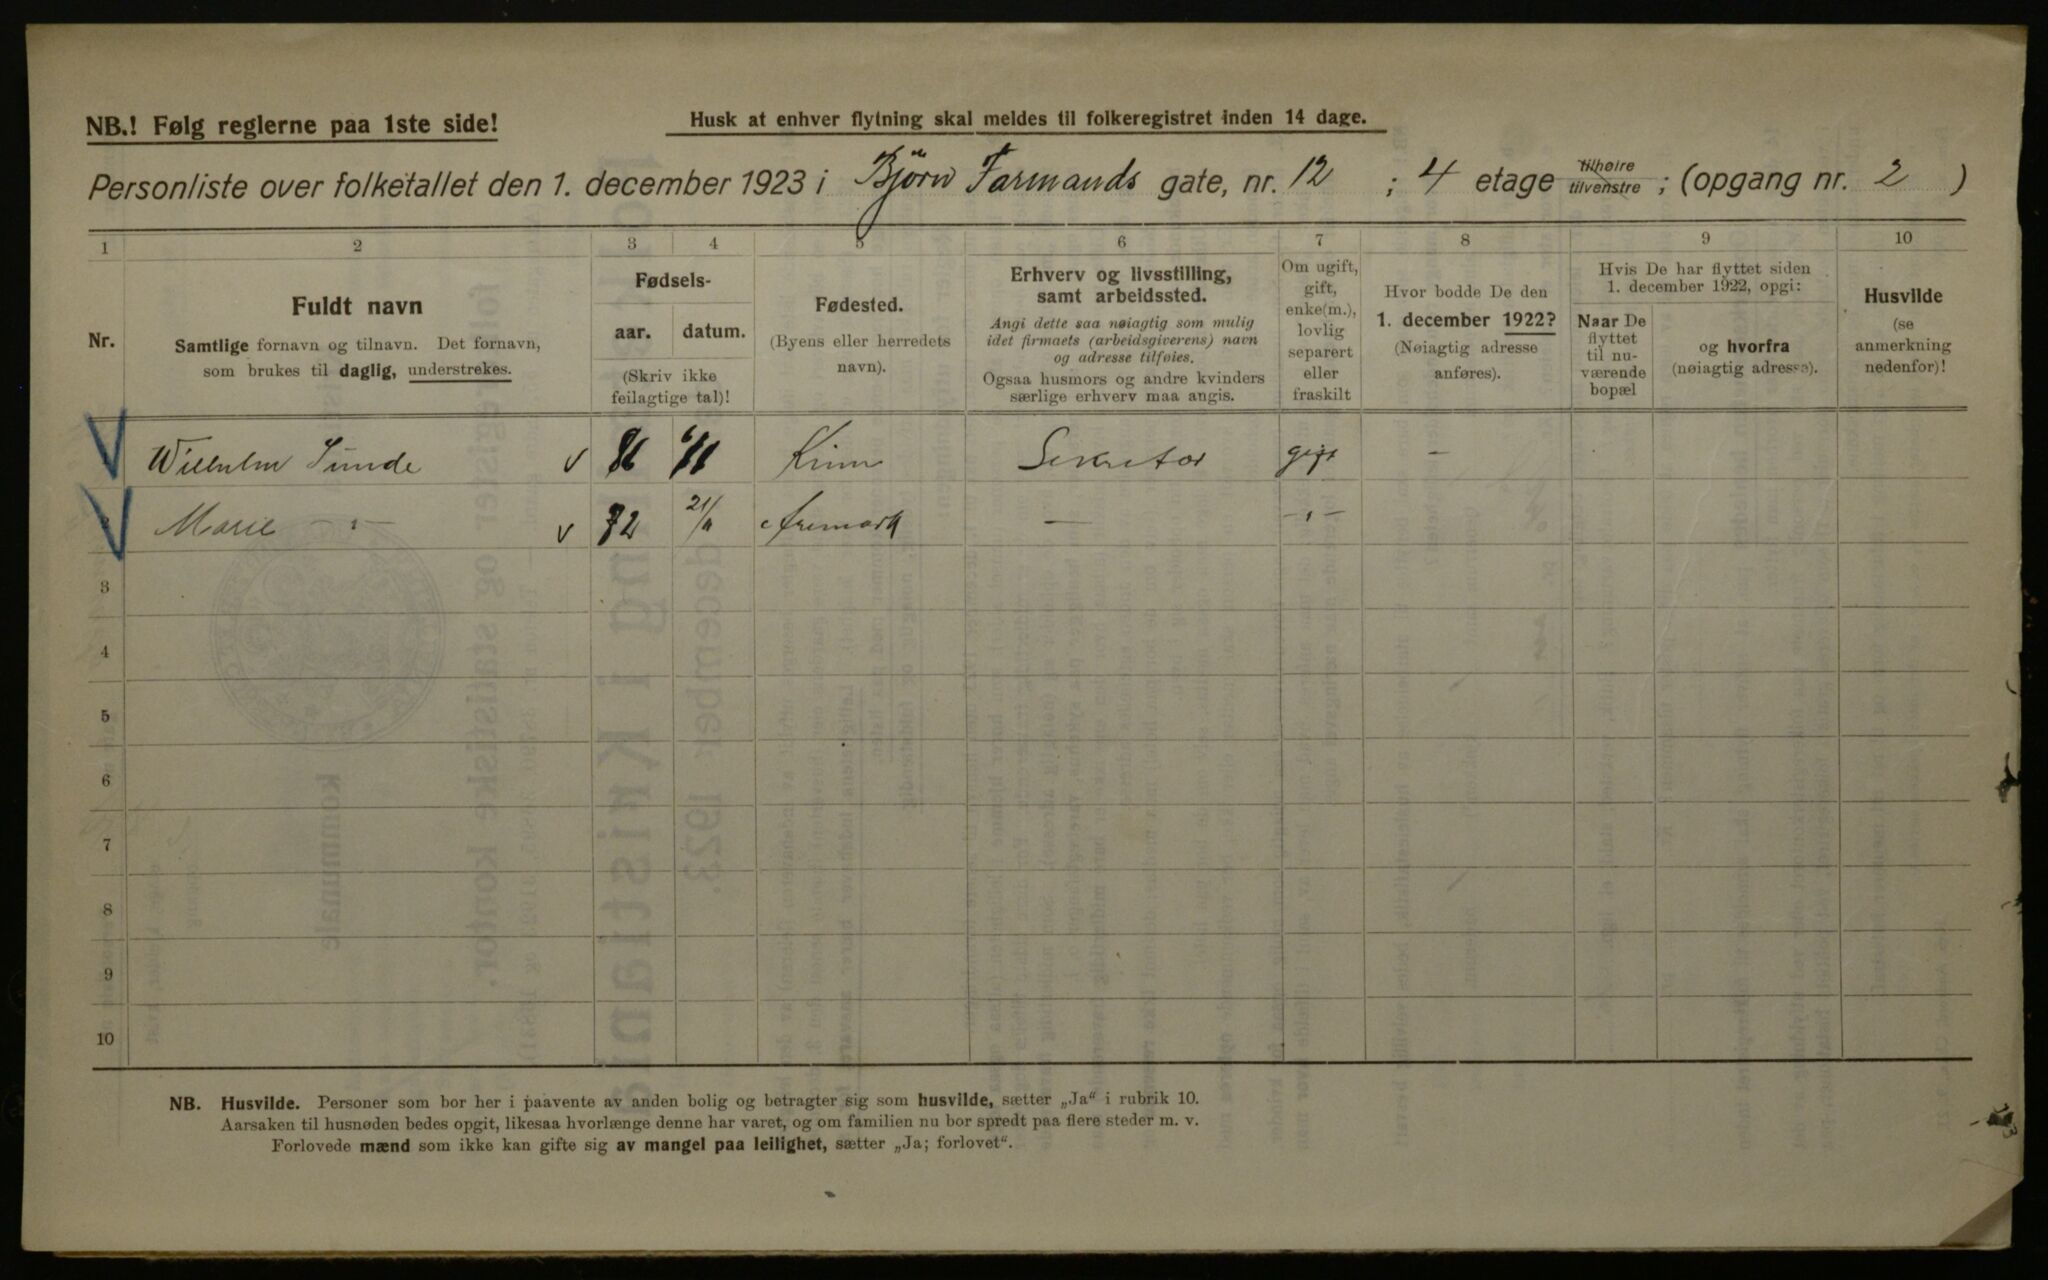 NB.! Følg reglerne paa 1ste side!
Husk at enhver flytning skal meldes til folkeregistret inden 14 dage.
Personliste over folketallet den 1. december 1923 i Bjørn Farmands gate, nr. 12 ; 4 etage tilhøire tilvenstre ; (opgang nr. 2 )
1 2 3 4 5 6 7 8 9 10
Nr.
Fuldt navn
Samtlige fornavn og tilnavn. Det fornavn,
som brukes til daglig, understrekes.
Fødsels-
aar. datum.
(Skriv ikke
feilagtige tal)!
Fødested.
(Byens eller herredets
navn).
Erhverv og livsstilling,
samt arbeidssted.
Angi dette saa nøiagtig som mulig
idet firmaets (arbeidsgiverens) navn
og adresse tilføies.
Ogsaa husmors og andre kvinders
særlige erhverv maa angis.
Om ugift,
gift,
enke(m.),
lovlig
separert
eller
fraskilt
Hvor bodde De den
1. december 1922?
(Nøiagtig adresse
anføres).
Hvis De har flyttet siden
1. december 1922, opgi:
Naar De
flyttet
til nu-
værende
bopæl
og hvorfra
(nøiagtig adresse).
Husvilde
(se
anmerkning
nedenfor)!
Wilhelm Sunde v 86 Kinn Sekretær gift -
Marie -"- v 72 Aremark - -"-
3
4
5
6
7
8
9
10
NB. Husvilde. Personer som bor her i paavente av anden bolig og betragter sig som husvilde, sætter „Ja“ i rubrik 10.
Aarsaken til husnøden bedes opgit, likesaa hvorlænge denne har varet, og om familien nu bor spredt paa flere steder m. v.
Forlovede mænd som ikke kan gifte sig av mangel paa leilighet, sætter „Ja; forlovet“.